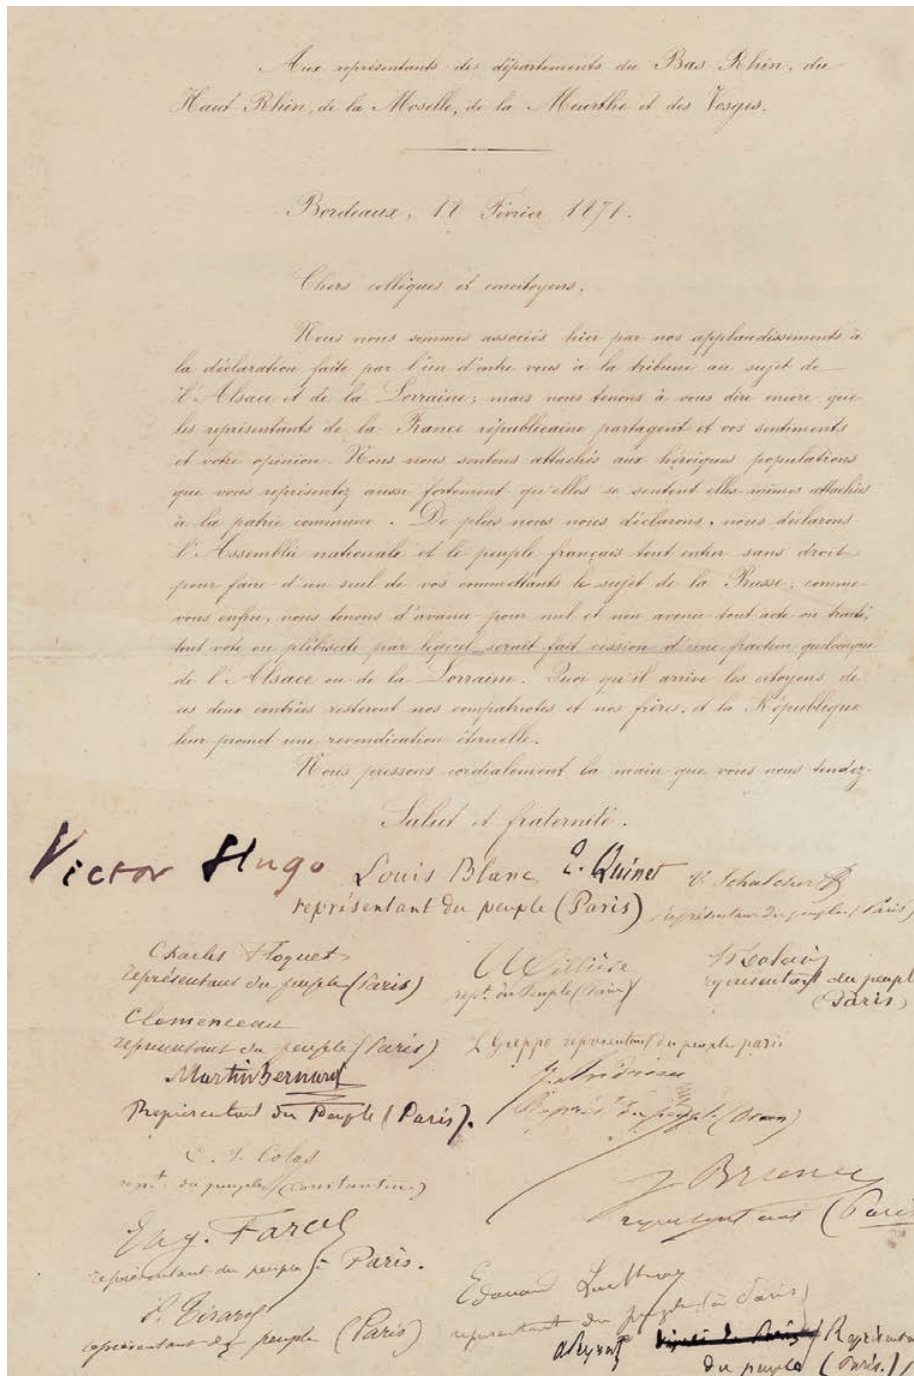 Aux représentants des départements du Bas Rhin, du
Haut-Rhin, de la Moselle, de la Meurthe et des Vosges.
Bordeaux, 18 Février 1871.
Chers collègues et concitoyens,
Nous nous sommes associés hier par nos applaudissements à
la déclaration faite par l'un d'entre vous à la tribune au sujet de
l'Alsace et de la Lorraine; mais nous tenons à vous dire encore que
les représentants de la France républicaine partagent et vos sentiments
et votre opinion. Nous nous sentons attachés aux héroïques populations
que vous représentez aussi fortement qu'elles se sentent elles-mêmes attachées
à la patrie commune. De plus nous nous déclarons, nous déclarons
l'Assemblée nationale et le peuple français tout entier sans droit
pour faire d'un seul de vos commettants le sujet de la Prusse; comme
vous enfin, nous tenons d'avance pour nul et non avenu tout acte ou traité,
tout vote ou plébiscite par lequel serait fait cession d'une fraction quelconque
de l'Alsace ou de la Lorraine. Quoi qu'il arrive les citoyens de
ces deux contrées resteront nos compatriotes et nos frères, et la République
leur promet une revendication éternelle.
Nous pressons cordialement la main que vous nous tendez.
Salut et fraternité.
Victor Hugo Louis Blanc, E. Quinet V. Schœlcher
représentant du peuple (Paris) représentant du peuple (Paris)
Charles Floquet Millière H Tolain
représentant du peuple (Paris) rept. du peuple (Paris) représentant du peupl
(Paris)
Clemenceau
représentant du peuple (Paris) L Greppo représentant du peuple paris
Martin Bernard
Représentant du Peuple (Paris). du peuple (Oran)
Colas
rept. du peuple (Constantine) J. Brunet
représentant (Paris
Eug. Farcy
représentant du peuple à Paris.
P. Tirard Edouard Lockroy
représentant du peuple (Paris) représentant du peuple (à Paris)
A Peyrat Représenta
du peuple (Paris.)